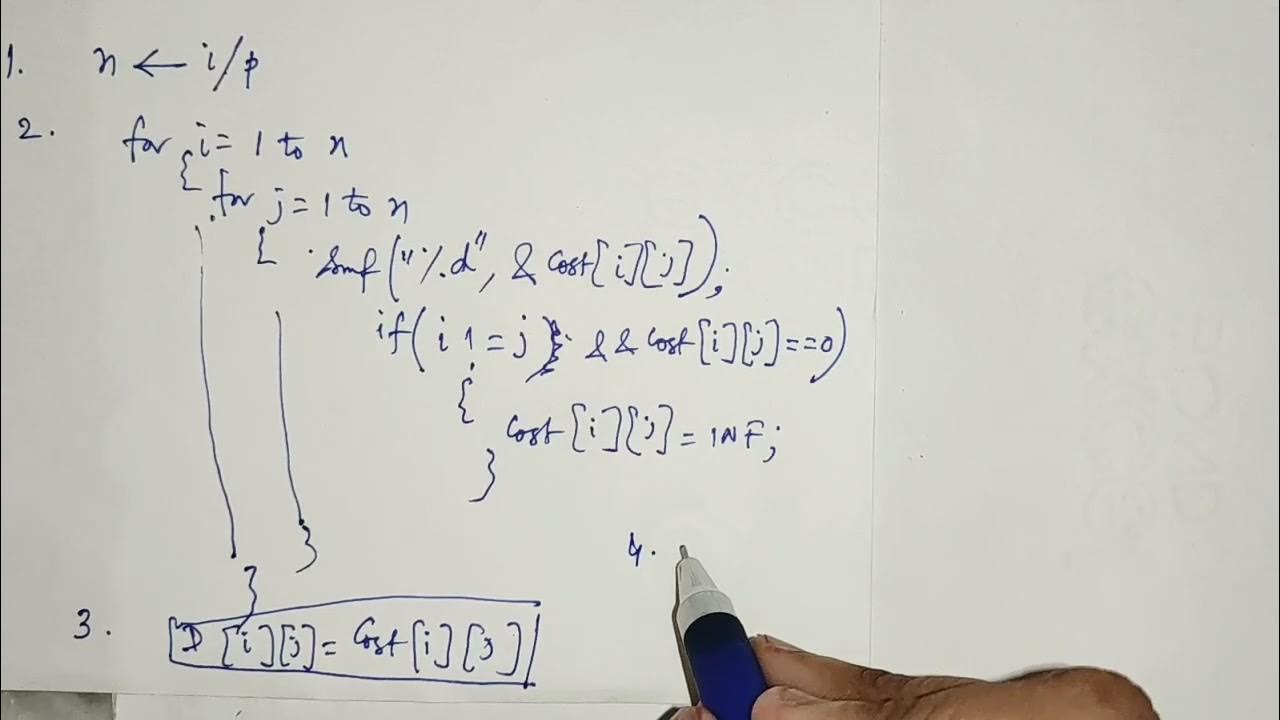 1. n ← i/p
2. for i = 1 to n
{ for j = 1 to n
{ smf("%d", & Cost[i][j]);
if(i != j && Cost[i][j]==0)
{
Cost[i][j] = INF;
}
}
}
3. D[i][j] = Cost[i][j]
4.